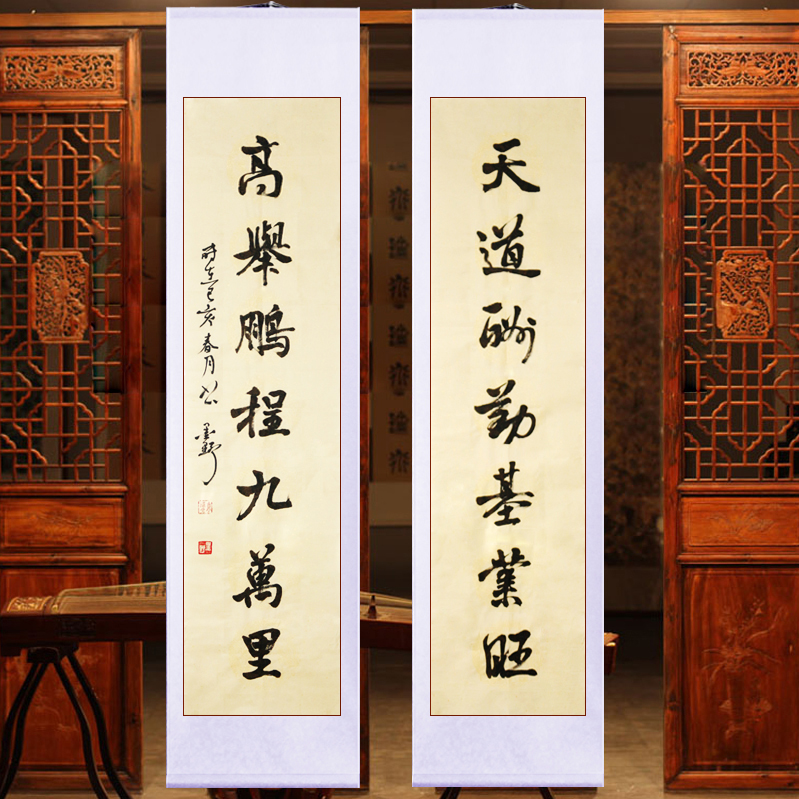 天道酬勤基業旺
高舉鵬程九萬里
時在己亥春月